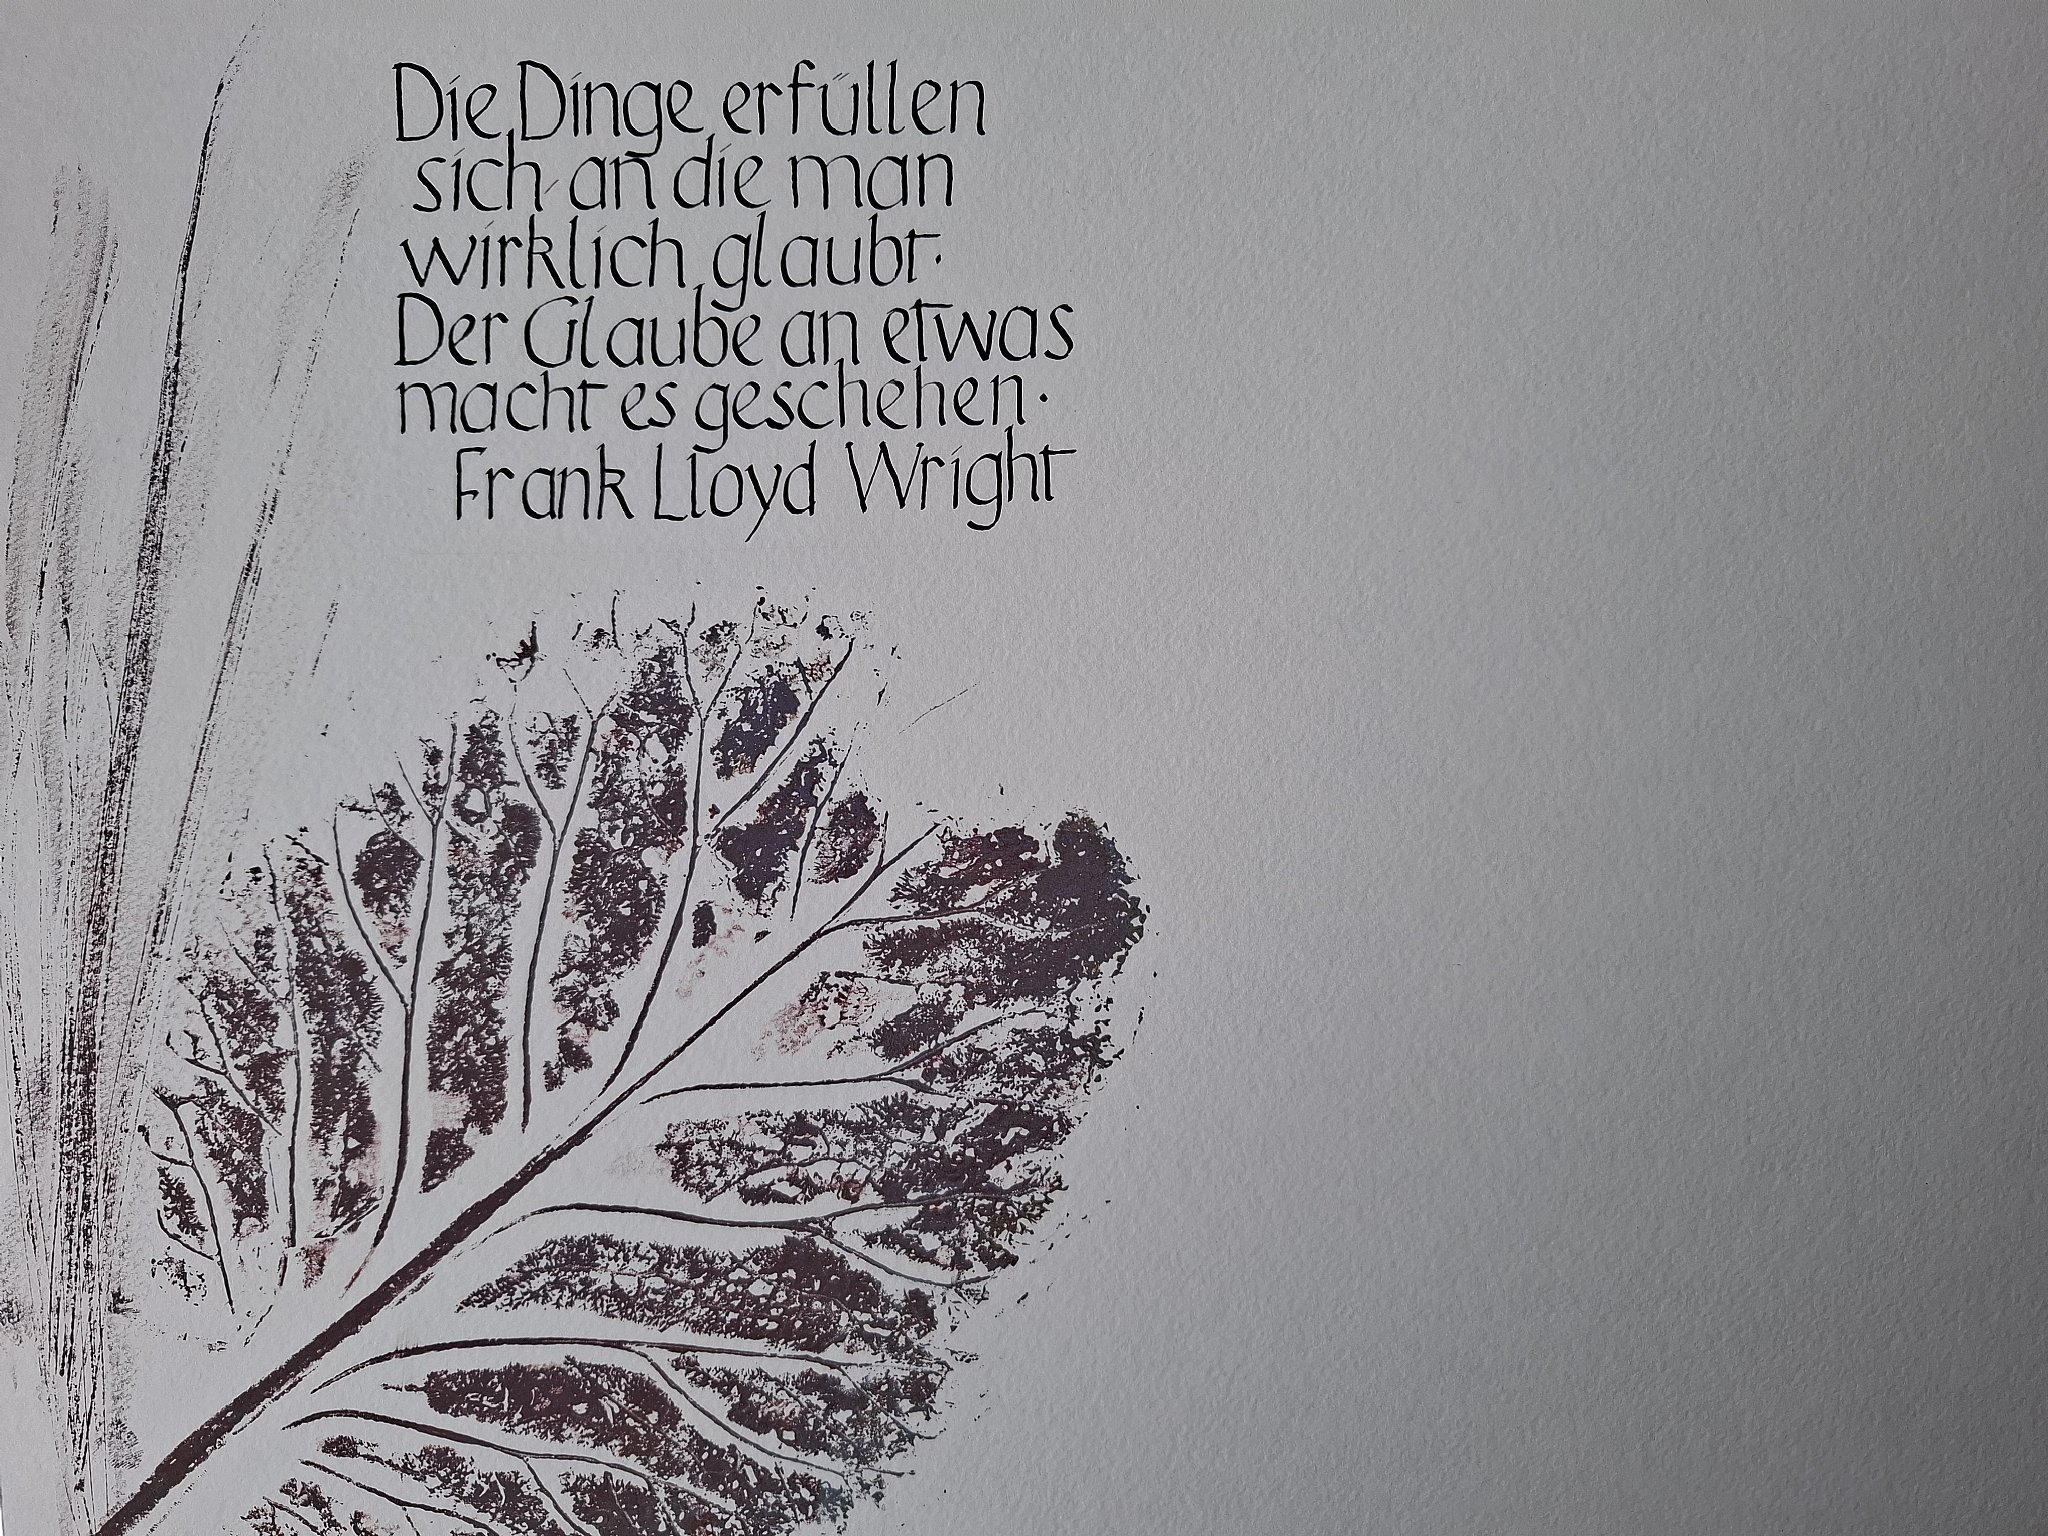 Die Dinge erfüllen
sich an die man
wirklich glaubt.
Der Glaube an etwas
macht es geschehen.
Frank Lloyd Wright